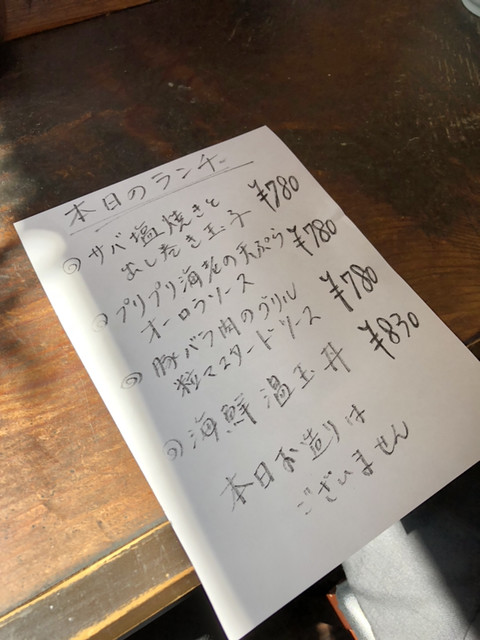 本日のランチ
◎ サバ塩焼きと
出し巻き玉子 ¥780
◎ プリプリ海老の天ぷら
オーロラソース ¥780
◎ 豚バラ肉のグリル
粒マスタードソース ¥780
◎ 海鮮温玉丼 ¥830
本日お造りは
ございません